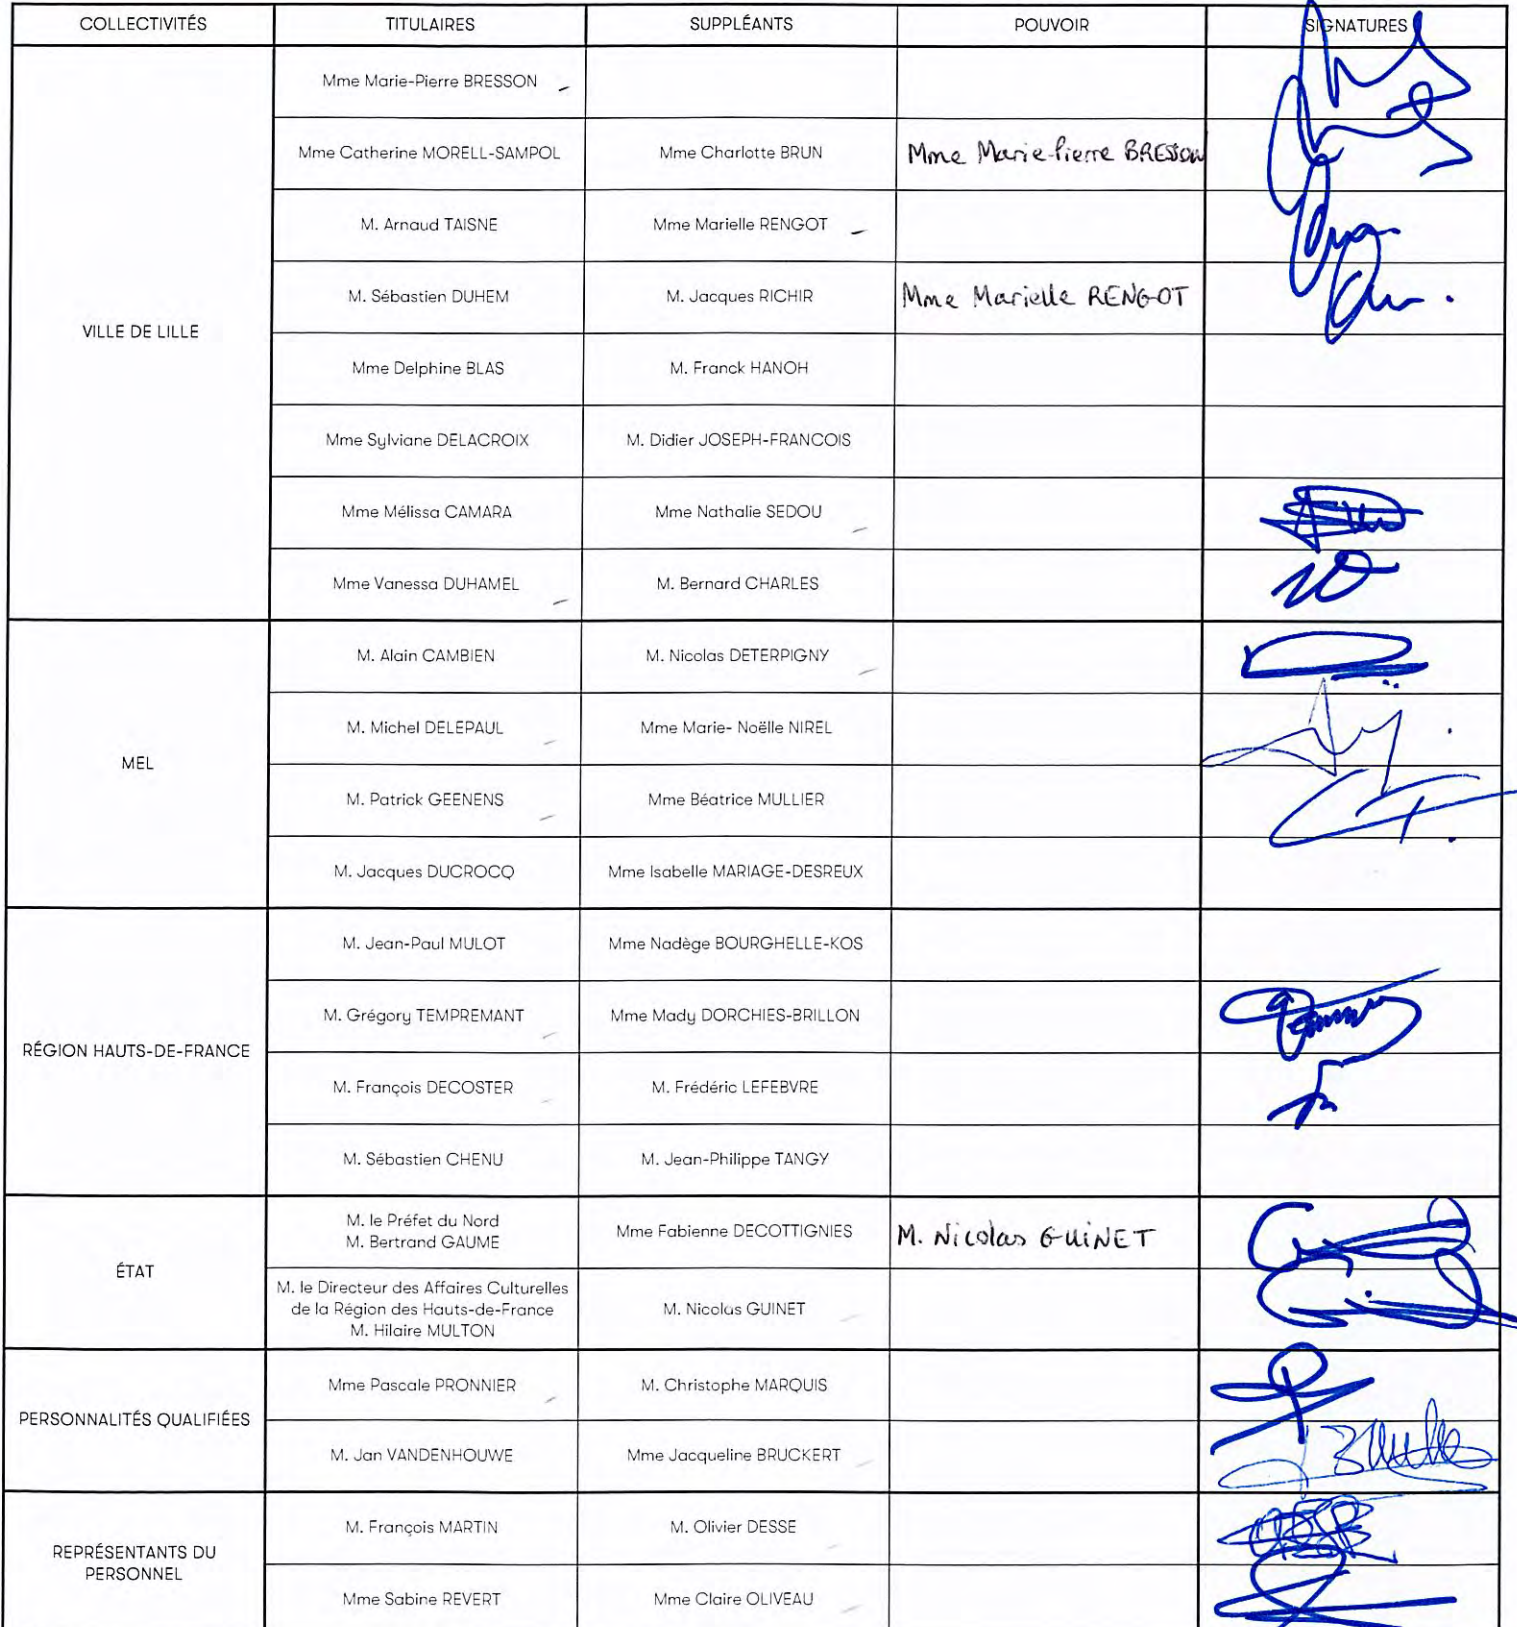 COLLECTIVITÉS TITULAIRES SUPPLÉANTS POUVOIR SIGNATURES
VILLE DE LILLE
Mme Marie-Pierre BRESSON
Mme Catherine MORELL-SAMPOL Mme Charlotte BRUN Mme Marie-Pierre BRESSON
M. Arnaud TAISNE Mme Marielle RENGOT
M. Sébastien DUHEM M. Jacques RICHIR Mme Marielle RENGOT
Mme Delphine BLAS M. Franck HANOH
Mme Sylviane DELACROIX M. Didier JOSEPH-FRANCOIS
Mme Mélissa CAMARA Mme Nathalie SEDOU
Mme Vanessa DUHAMEL M. Bernard CHARLES
MEL
M. Alain CAMBIEN M. Nicolas DETERPIGNY
M. Michel DELEPAUL Mme Marie- Noëlle NIREL
M. Patrick GEENENS Mme Béatrice MULLIER
M. Jacques DUCROCQ Mme Isabelle MARIAGE-DESREUX
RÉGION HAUTS-DE-FRANCE
M. Jean-Paul MULOT Mme Nadège BOURGHELLE-KOS
M. Grégory TEMPREMANT Mme Mady DORCHIES-BRILLON
M. François DECOSTER M. Frédéric LEFEBVRE
M. Sébastien CHENU M. Jean-Philippe TANGY
ÉTAT
M. le Préfet du Nord
M. Bertrand GAUME Mme Fabienne DECOTTIGNIES M. Nicolas GUINET
M. le Directeur des Affaires Culturelles
de la Région des Hauts-de-France
M. Hilaire MULTON M. Nicolas GUINET
PERSONNALITÉS QUALIFIÉES
Mme Pascale PRONNIER M. Christophe MARQUIS
M. Jan VANDENHOUWE Mme Jacqueline BRUCKERT
REPRÉSENTANTS DU
PERSONNEL
M. François MARTIN M. Olivier DESSE
Mme Sabine REVERT Mme Claire OLIVEAU